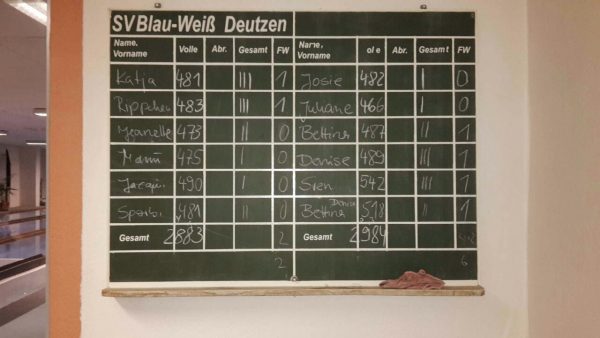 SV Blau-Weiß Deutzen
Name, Vorname Volle Abr. Gesamt FW Name, Vorname olle Abr. Gesamt FW
Katja 481 III 1 Josie 482 I 0
Rippchen 483 III 1 Juliane 466 I 0
Jeanette 473 II 0 Bettina 487 II 1
Mandy 475 I 0 Denise 489 III 1
490 I 0 542 III 1
481 II 0 Bettina Denise 518 II 1
Gesamt 2883 2 Gesamt 2984
2 6